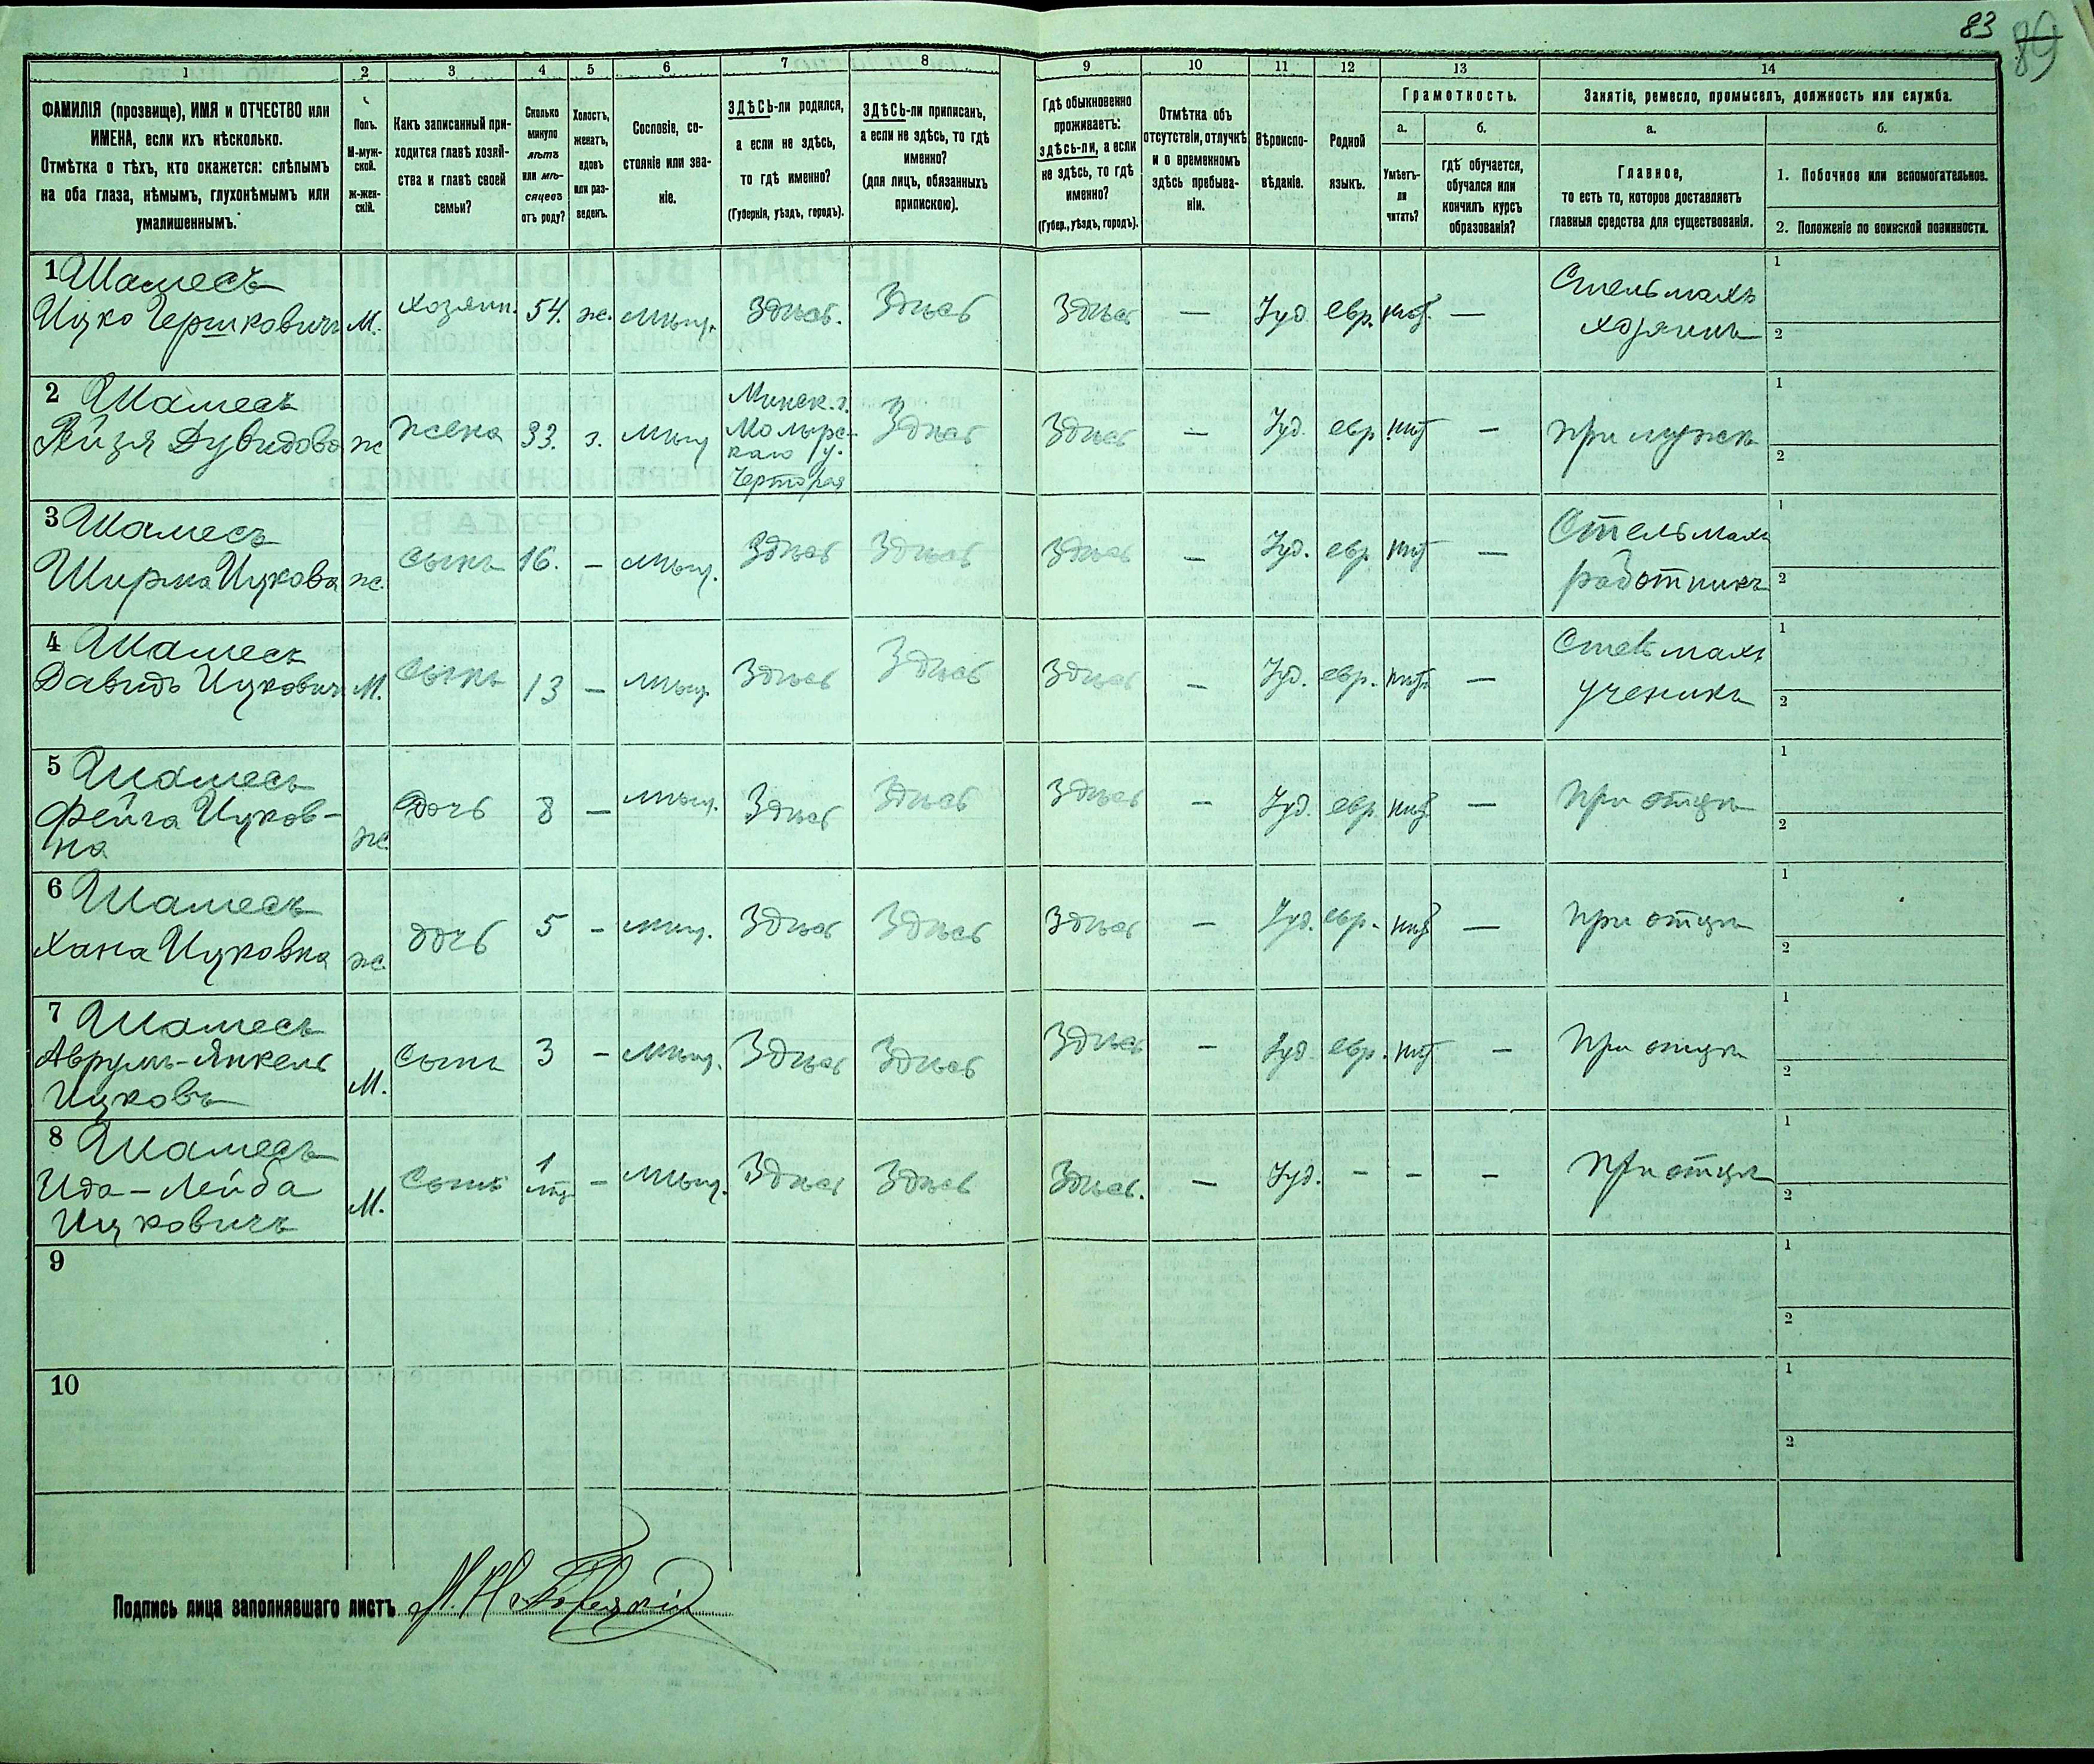 83
89
1
2
3
4
5
6
7
8
9
10
11
12
13
14
ФАМИЛІЯ (прозвище), ИМЯ и ОТЧЕСТВО или
ИМЕНА, если ихъ нѣсколько.
Отмѣтка о тѣхъ, кто окажется: слѣпымъ
на оба глаза, нѣмымъ, глухонѣмымъ или
умалишеннымъ.
Полъ.
М-муж-
ской.
ж-жен-
скій.
Какъ записанный при-
ходится главѣ хозяй-
ства и главѣ своей
семьи?
Сколько
минуло
лѣтъ
или мѣ-
сяцевъ
отъ роду?
Холостъ,
женатъ,
вдовъ
или раз-
веденъ.
Сословіе, со-
стояніе или зва-
ніе.
ЗДѢСЬ-ли родился,
а если не здѣсь,
то гдѣ именно?
(Губернія, уѣздъ, городъ).
ЗДѢСЬ-ли приписанъ,
а если не здѣсь, то гдѣ
именно?
(для лицъ, обязанныхъ
припискою).
Гдѣ обыкновенно
проживаетъ:
здѣсь-ли, а если
не здѣсь, то гдѣ
именно?
(Губер., уѣздъ, городъ).
Отмѣтка объ
отсутствіи, отлучкѣ
и о временномъ
здѣсь пребыва-
ніи.
Вѣроиспо-
вѣданіе.
Родной
языкъ.
Грамотность.
а.
б.
Умѣетъ-
ли
читать?
гдѣ обучается,
обучался или
кончилъ курсъ
образованія?
Занятіе, ремесло, промыселъ, должность или служба.
а.
б.
Главное,
то есть то, которое доставляетъ
главныя средства для существованія.
1. Побочное или вспомогательное.
2. Положеніе по воинской повинности.
1 Шамесъ
Ицко Гершковичъ М. хозяин. 54. ж. мѣщ. Здѣсь. Здѣсь Здѣсь — Іуд. евр. нѣт. —
Стельмахъ
хозяинъ
1
2
2 Шамесъ
Рейзя Дувидова ж жена 33. з. мѣщ
Минск. г.
Мозырс-
каго у.
Здѣсь Здѣсь — Іуд. евр нѣт — при мужѣ
1
2
3 Шамесъ
Ширма Ицкова ж. сынъ 16. — мѣщ. Здѣсь Здѣсь Здѣсь — Іуд. евр. нѣт —
Стельмахъ
работникъ
1
2
4 Шамесъ
Давидъ Ицкович М. Сынъ 13 — мѣщ. Здѣсь Здѣсь Здѣсь — Іуд. евр. нѣт —
Стельмахъ
ученикъ
1
2
5 Шамесъ
Фейга Ицков-
на ж дочь 8 — мѣщ. Здѣсь Здѣсь Здѣсь — Іуд. евр. нѣт — при отцѣ
1
2
6 Шамесъ
Хана Ицковна ж. дочь 5 — мѣщ. Здѣсь Здѣсь Здѣсь — Іуд. евр. нѣт — при отцѣ
1
2
7 Шамесъ
Аврумъ-Янкель
Ицковъ М. Сынъ 3 — мѣщ. Здѣсь Здѣсь Здѣсь — Іуд. евр. нѣт — при отцѣ
1
2
8 Шамесъ
Ида-Лейба
Ицковичъ М. Сынъ 1 — мѣщ. Здѣсь Здѣсь Здѣсь. — Іуд. — — — при отцѣ
1
2
9
1
2
10
1
2
Подпись лица заполнявшаго листъ